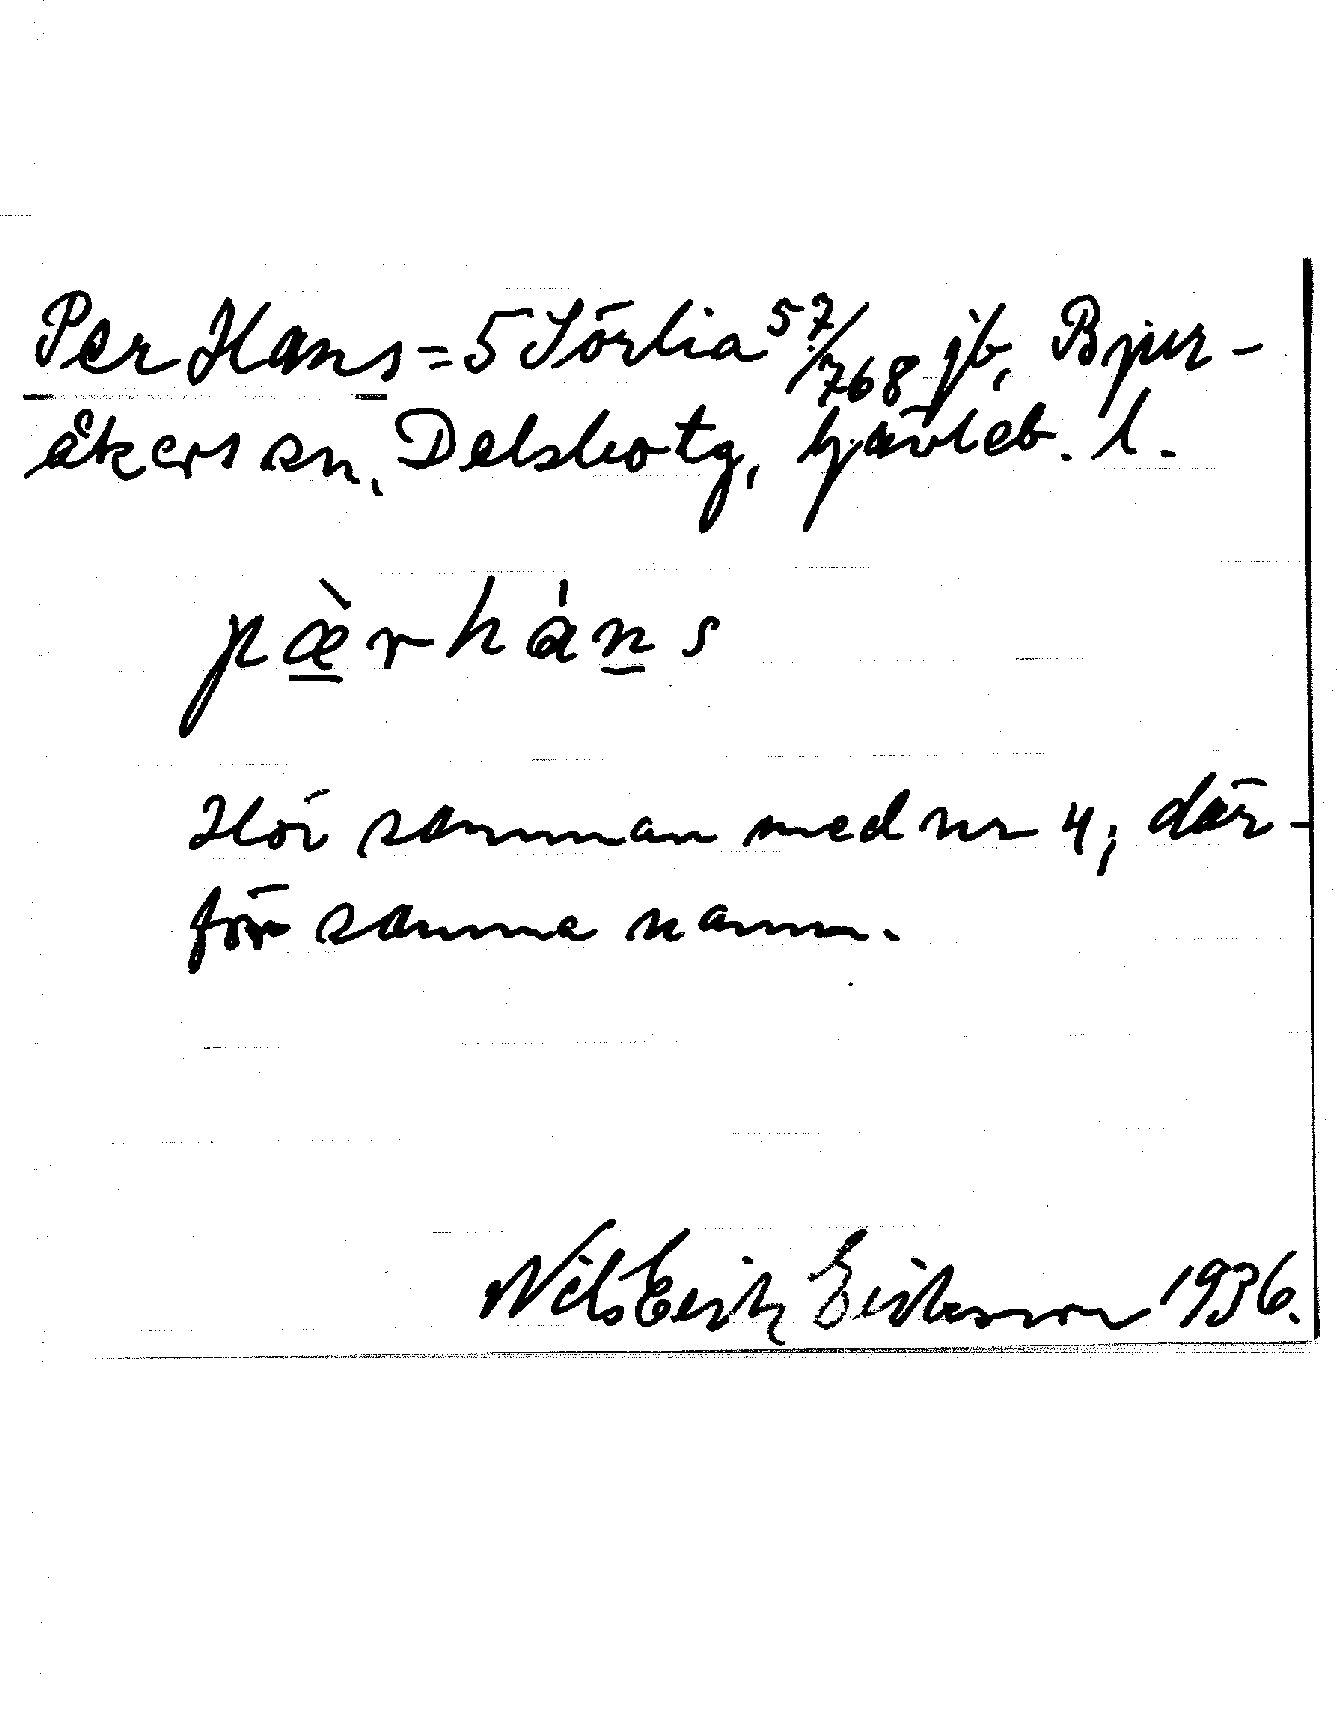 Per Hans = 5 Sörlia 57/768 jb, Bjur-
åkers sn, Delsbo tg, Gävleb. l.
pæ̀rháns
Hör samman med nr 4; där-
för samma namn.
Nils Erik Eriksson 1936.